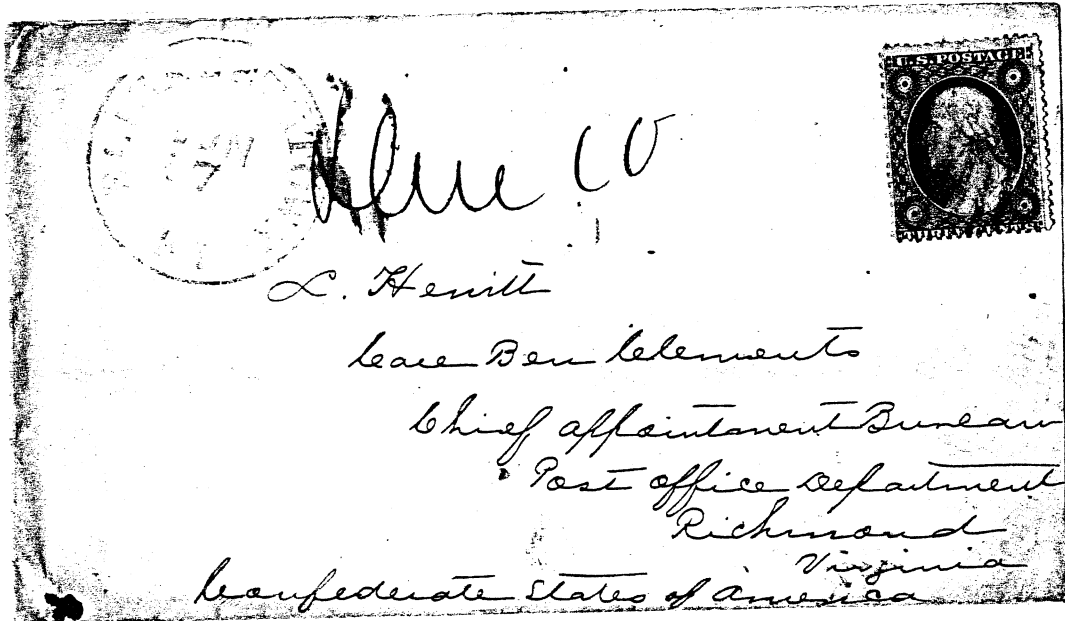 U.S. POSTAGE
Due 10
L. Hewitt
Care Ben Clements
Chief appointment Bureau
Post office Department
Richmond
Virginia
Confederate States of America